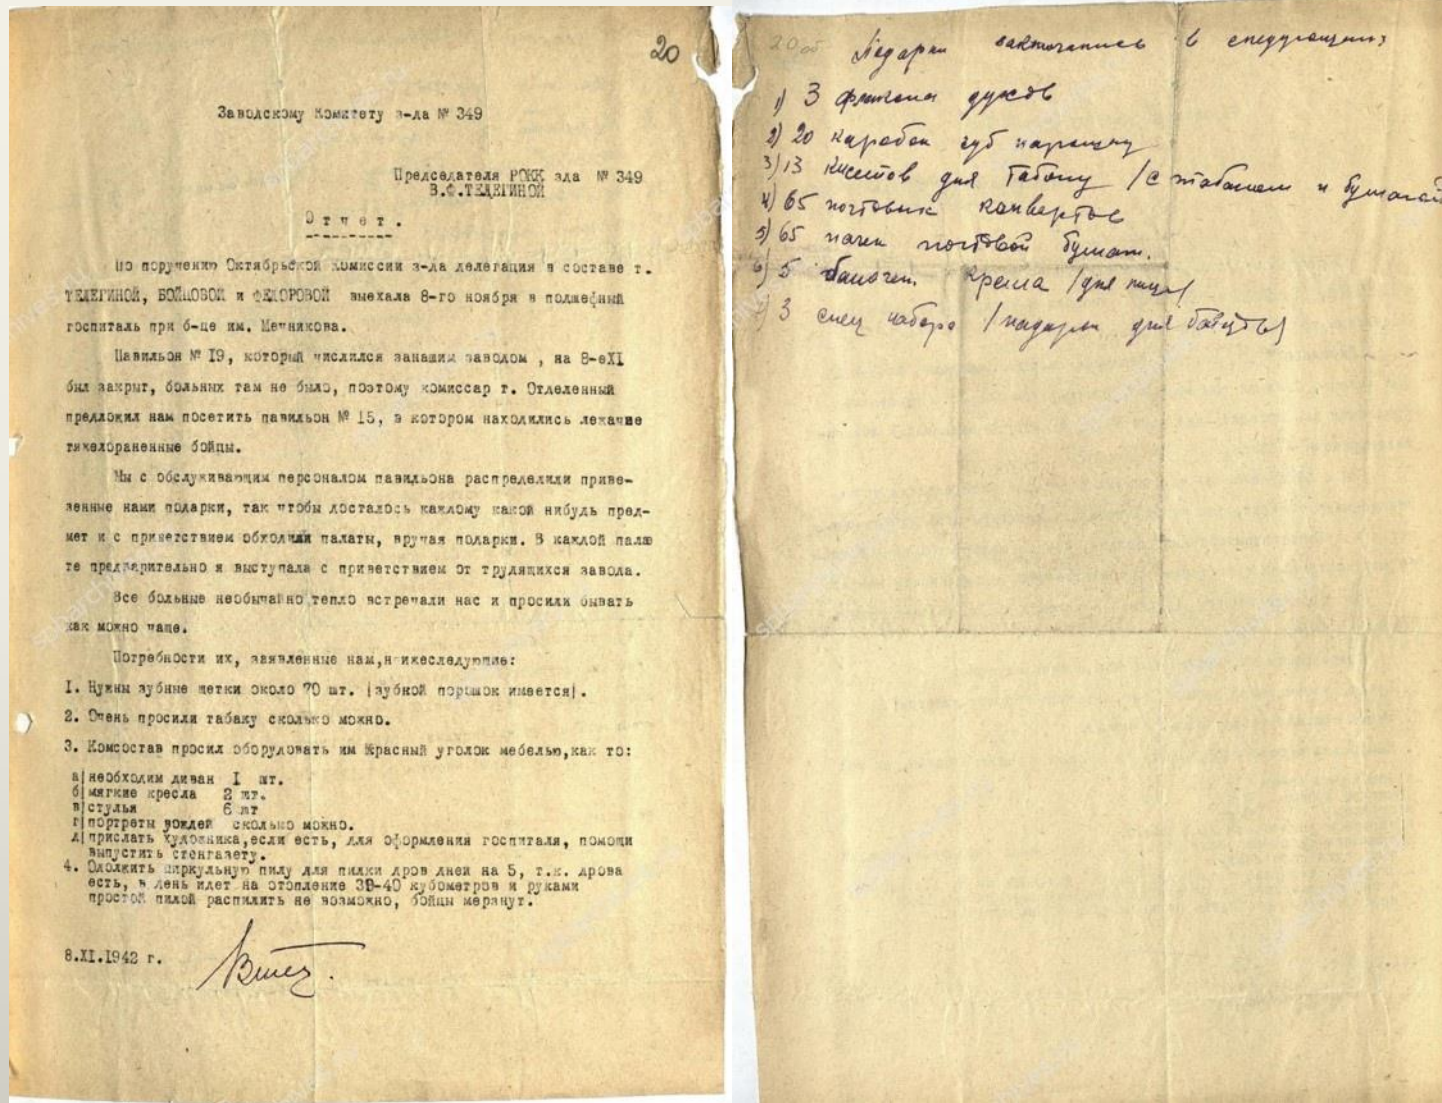 20
Заводскому Комитету з-да № 349
Председателя РОКК зда № 349
В.Ф.ТЕЛЕГИНОЙ
Отчет.
По поручению Октябрьской комиссии з-да делегация в составе т.
ТЕЛЕГИНОЙ, БОЙЦОВОЙ и ФЕДОРОВОЙ выехала 8-го ноября в подшефный
госпиталь при б-це им. Мечникова.
Павильон № 19, который числился занашим заводом , на 8-еXI
был закрыт, больных там не было, поэтому комиссар т. Отделенный
предложил нам посетить павильон № 15, в котором находились лежачие
тяжелораненные бойцы.
Мы с обслуживающим персоналом павильона распределили приве-
зенные нами подарки, так чтобы досталось каждому какой нибудь пред-
мет и с приветствием обходили палаты, вручая подарки. В каждой пала
те предварительно я выступала с приветствием от трудящихся завода.
Все больные необычайно тепло встречали нас и просили бывать
как можно чаще.
Потребности их, заявленные нам,нижеследующие:
I. Нужны зубные щетки около 70 шт. |зубной порошок имеется|.
2. Очень просили табаку сколько можно.
3. Комсостав просил оборудовать им Красный уголок мебелью,как то:
а|необходим диван I шт.
б|мягкие кресла 2 шт.
в|стулья 6 шт
г|портреты вождей сколько можно.
д|прислать художника,если есть, для оформления госпиталя, помощи
выпустить стенгазету.
4. Одолжить циркульную пилу для пилки дров дней на 5, т.к. дрова
есть, в день идет на отопление 39-40 кубометров и руками
простой пилой распилить не возможно, бойцы мерзнут.
8.XI.1942 г.
20об
Подарки заключались в следующем:
1) 3 флакона духов
2) 20 коробок зуб порошку
3) 13 кисетов для табаку /с табаком и бумагой
4) 65 почтовых конвертов
5) 65 пачек почтовой бумаги.
6) 5 баночек крема /для лица/
7) 3 спец набора /подарки для